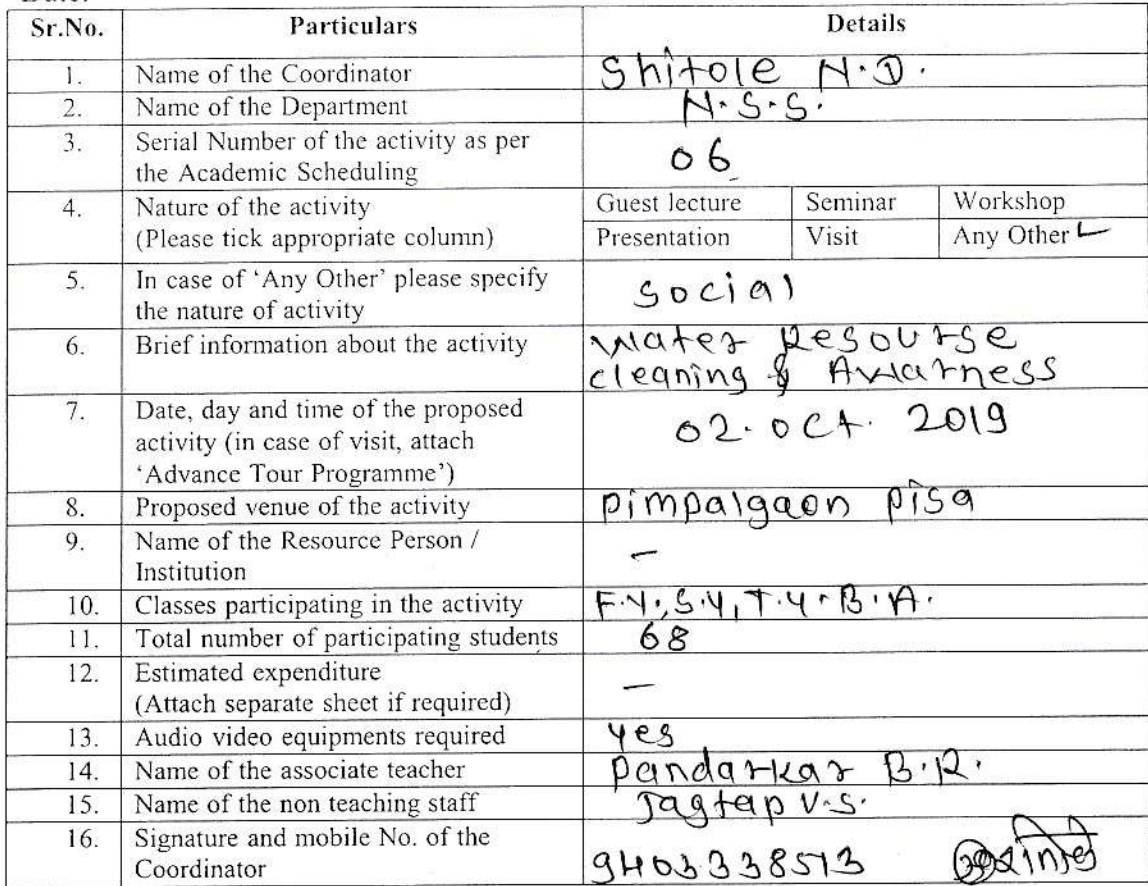 Sr.No. Particulars Details
1. Name of the Coordinator Shitole N.D.
2. Name of the Department N.S.S.
3. Serial Number of the activity as per
the Academic Scheduling 06
4. Nature of the activity Guest lecture Seminar Workshop
(Please tick appropriate column) Presentation Visit Any Other ✓
5. In case of 'Any Other' please specify
the nature of activity social
6. Brief information about the activity Water Resourse
cleaning & Awarness
7. Date, day and time of the proposed
activity (in case of visit, attach 02. oct. 2019
'Advance Tour Programme')
8. Proposed venue of the activity pimpalgaon pisa
9. Name of the Resource Person /
Institution –
10. Classes participating in the activity F.Y., S.Y, T.Y. B.A.
11. Total number of participating students 68
12. Estimated expenditure
(Attach separate sheet if required) –
13. Audio video equipments required yes
14. Name of the associate teacher Pandarkar B.R.
15. Name of the non teaching staff Jagtap V.S.
16. Signature and mobile No. of the
Coordinator 9403338513